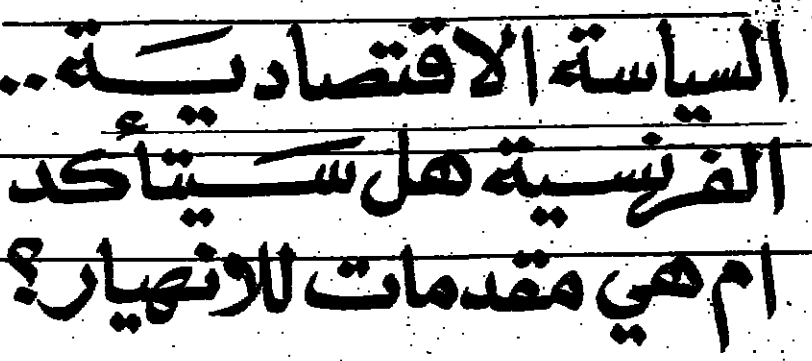 السياسة الاقتصادية..
الفرنسية هل سيتأكد
ام هي مقدمات للانهيار؟